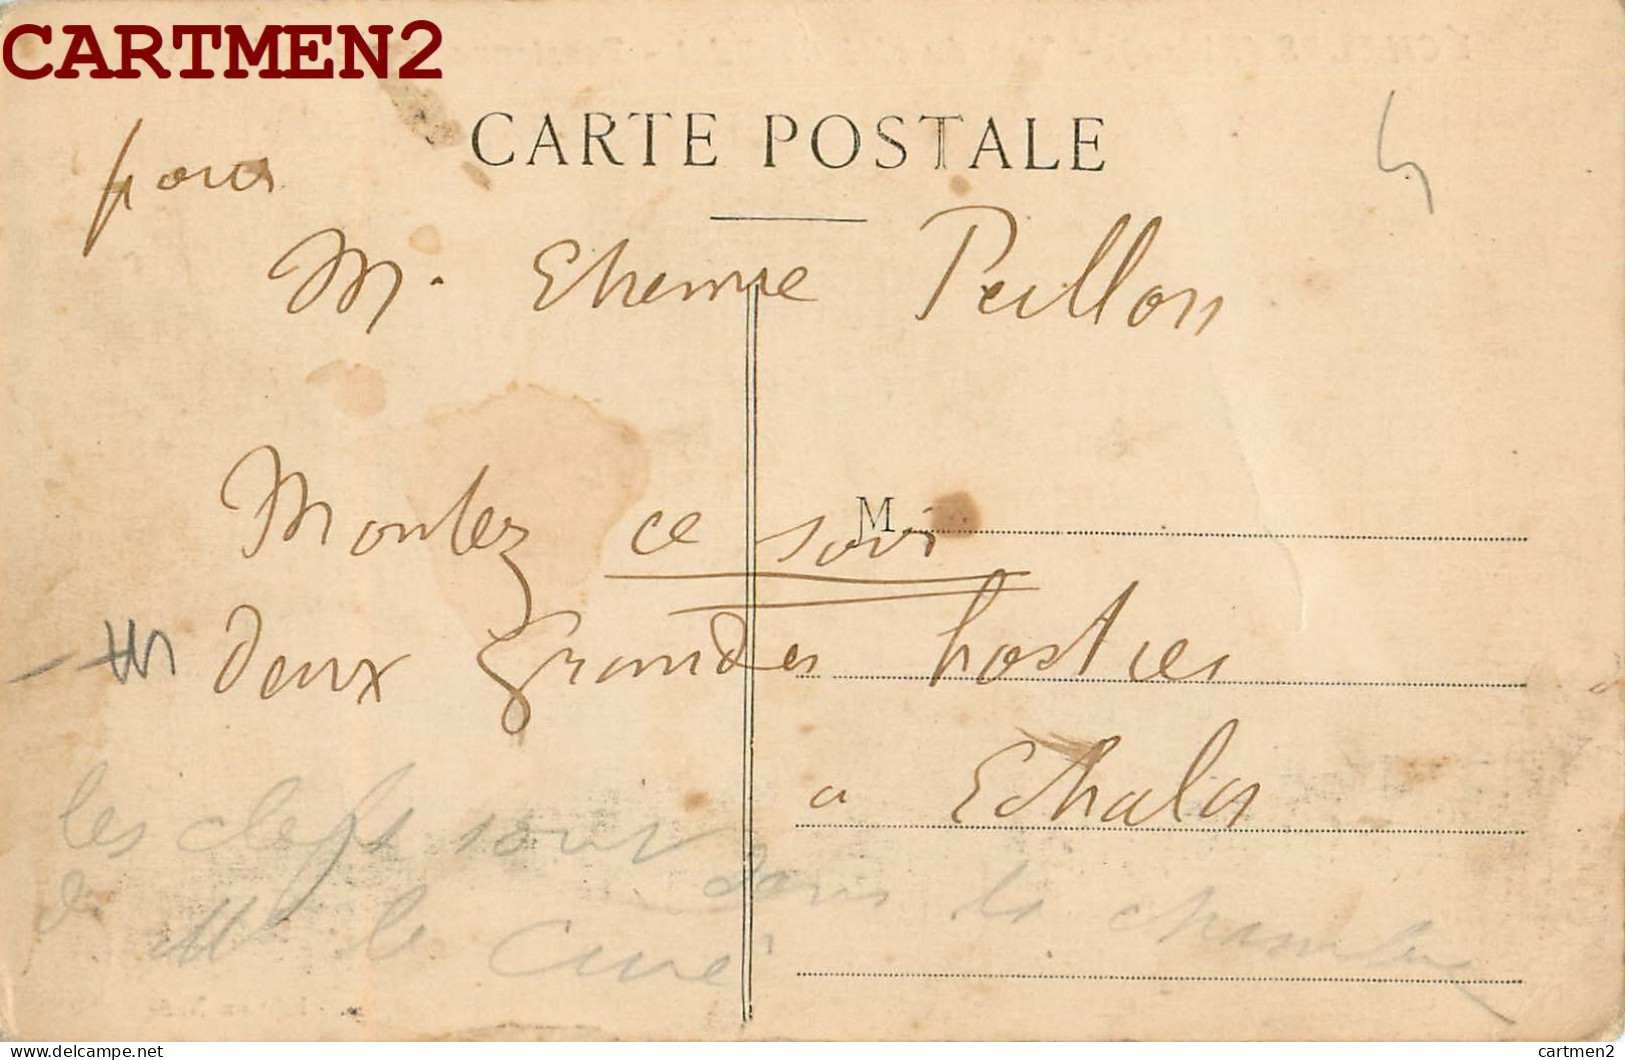 CARTMEN2
CARTE POSTALE
pour
M. Etienne Peillon
Montez ce soir
M
deux grandes hosties
a Echalas
les clefs sont dans la chambre
de Mr le Curé
delcampe.net
cartmen2